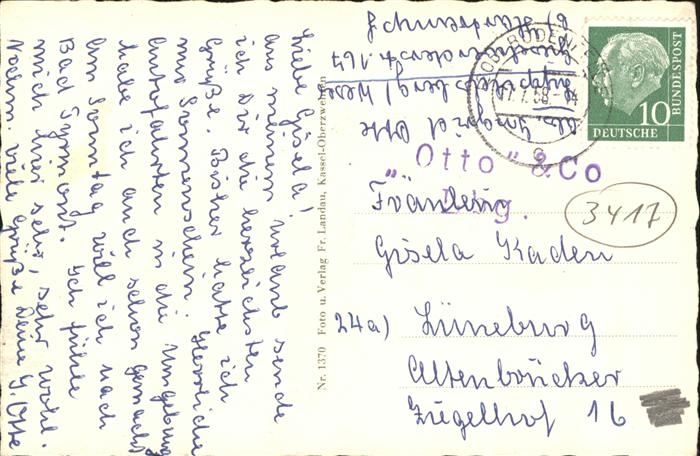 Liebe Gisela!
Aus meinem Urlaub sende
ich Dir die herzlichsten
Grüße. Bisher hatte ich
nur Sonnenschein. Herrliche
Autofahrten in die Umgebung
habe ich auch schon gemacht.
Am Sonntag will ich nach
Bad Pyrmont. Ich fühle
mich hier sehr, sehr wohl.
Nochm. viele Grüße Deine G. Otte
Nr. 1370 Foto u. Verlag Fr. Landau, Kassel-Oberzwehren
Abs. Ingrid Otte
DEUTSCHE BUNDESPOST
10
"Otto" & Co
Fräulein
Gisela Kaden
3417
24a) Lüneburg
Altenbrücker
Ziegelhof 16